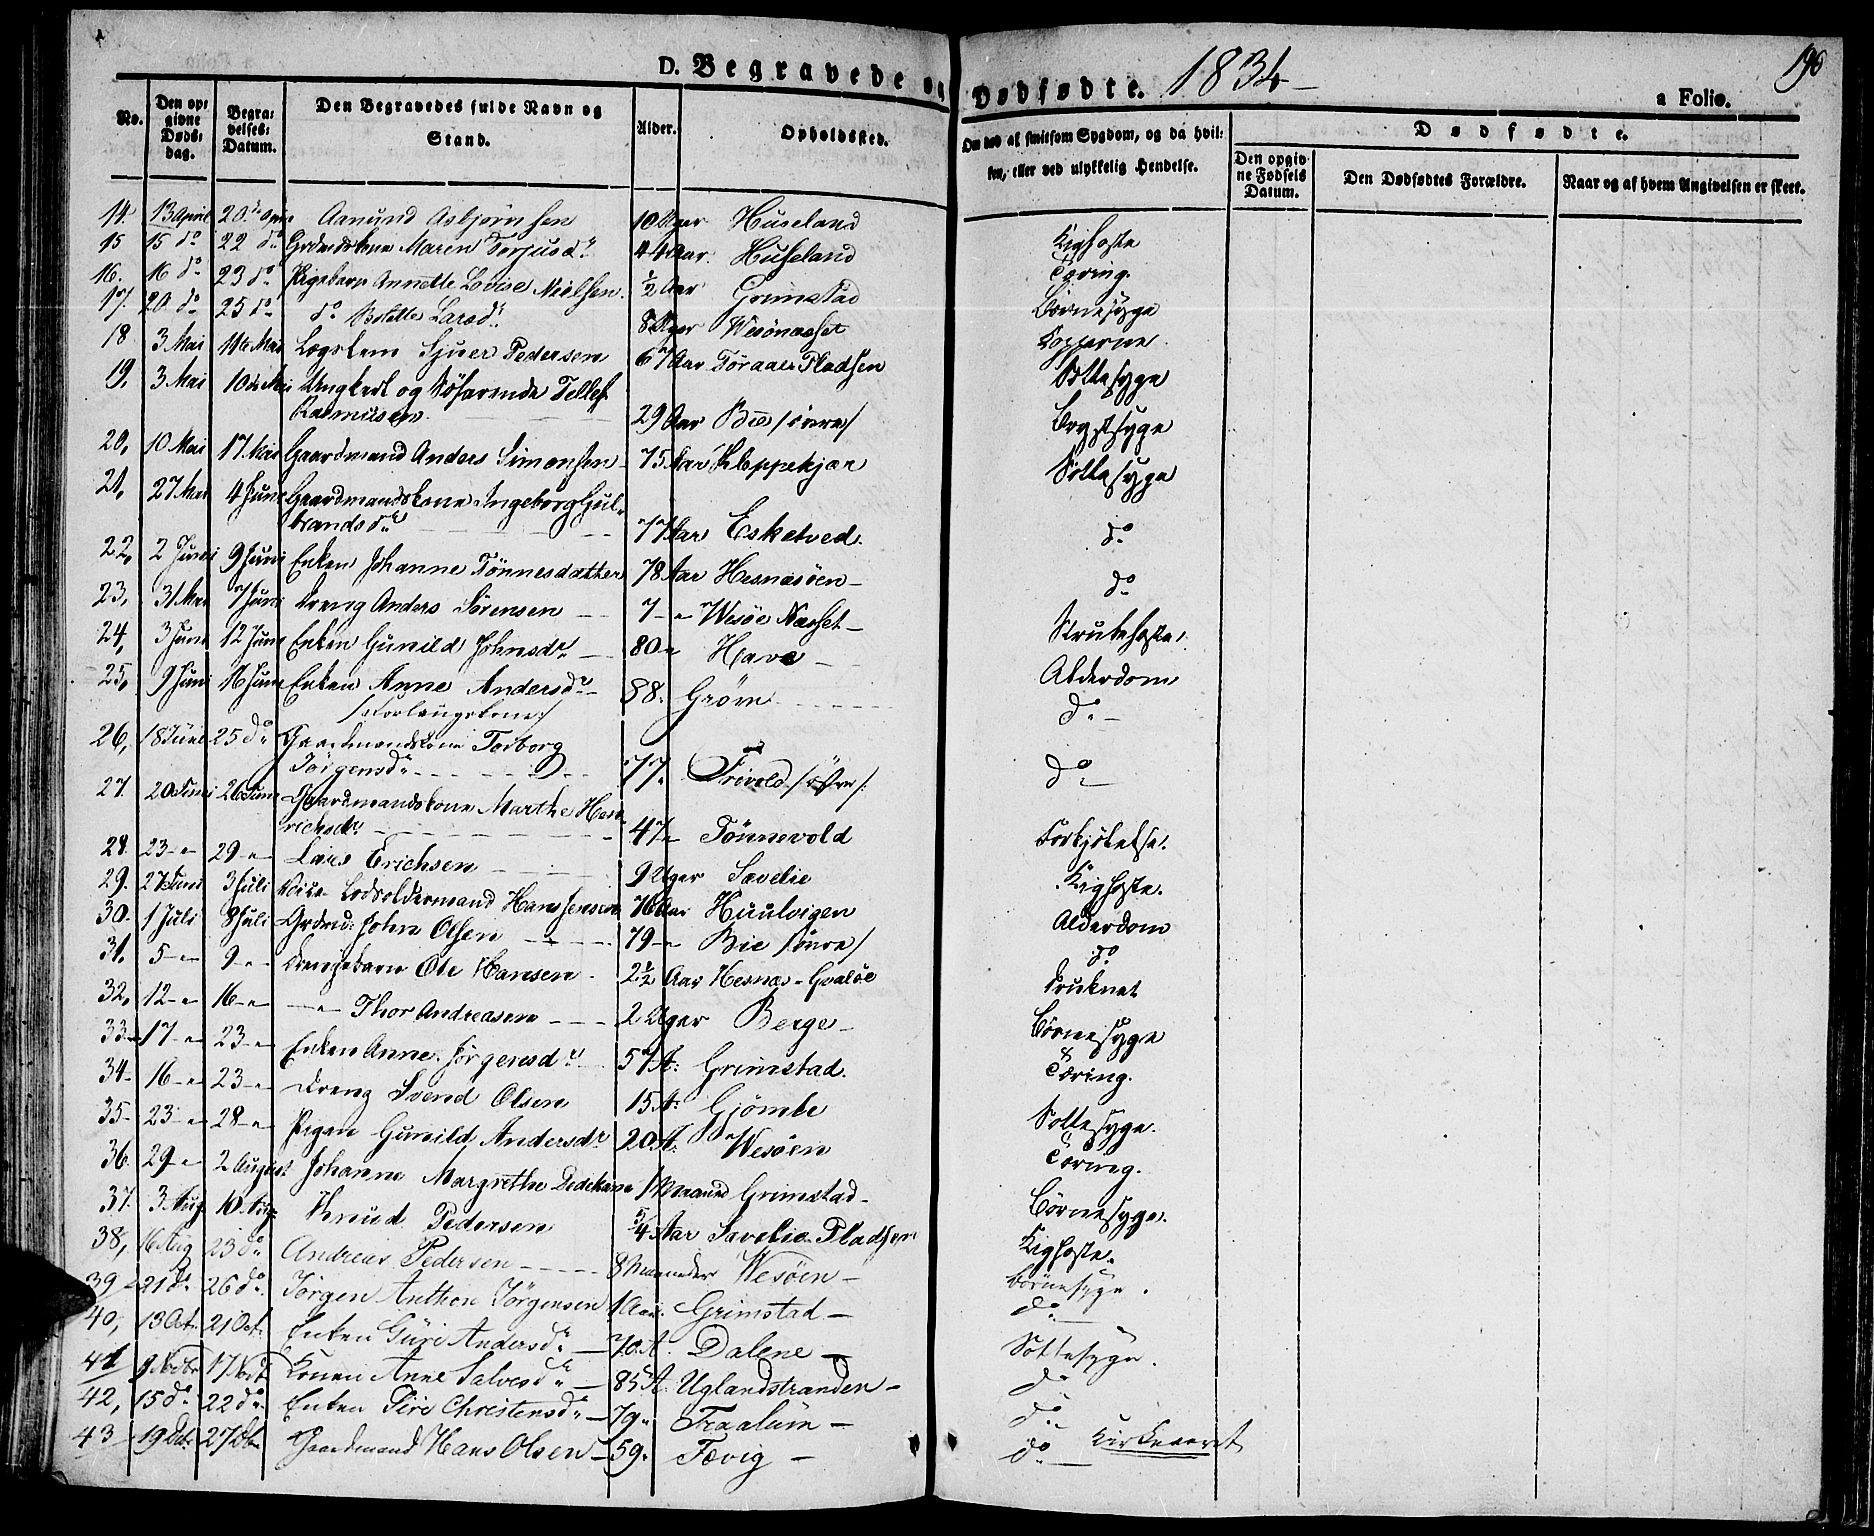 D. Begravede og Dødfødte. 1834 190
a Folio.
No. Den opgivne Dødsdag. Begravelses-Datum. Den Begravedes fulde Navn og Stand. Alder. Opholdssted. Om død af smitsom Sygdom, og da hvilken, eller ved ulykkelig Hendelse. Dødfødte.
Den opgivne Fødsels Datum. Den Dødfødtes Forældre. Naar og af hvem Angivelsen er skeet.
14. 13 April 20de April Aanund Asbjørnsen 10 Uger Huseland Kighoste
15 15 do 22 do Grdmdskone Maren Torjusdr 44 Aar. Huseland Tæring.
16. 16 do 23 do Pigebarn Annette Lovise Nielsen. 1/2 Aar Grimstad Børnesyge
17. 20 do 25 do do Larsdr 8 Uger Wesønæsset Kopperne.
18 3 Mai 11te Mai Lægslem Sjuer Pedersen 67 Aar Pladsen Sottesyge
19, 3 Mai 10de Mai Ungkarl og Søfarende Tellef
Rasmusen. 29 Aar Bie /øvre/ Brystsyge
20, 10 Mai 17 Mai Gaardmand Anders Simonsen 75 Aar Kleppekjær Sottesyge
21, 27 Mai 4 Juni Gaardmandskone Ingeborg Gul-
brandsdr 77 Aar Esketved. do
22, 2 Juni 9 Juni Enken Johanne Tönnesdatther 78 Aar Hesnæsöen do
23, 31 Mai 7 Juni Dreng Anders Sörensen 7 - Wesöe Næsset Strubehoste.
24, 3 Juni 12 Juni Enken Gunild Johnsdr 80 - Have Alderdom
25, 9 Juni 16 Juni Enken Anne Andersdr 88. Gröm do
26, 18 Juni 25 do Gaardmandskone Torborg
Jörgensdr 77. Frivold /östre/ do
27. 20 Juni 26 Juni Gaardmandskone Marthe Hen-
richsdr 47 - Tönnevold Forkjölelse.
28. 23 - 29 - Lars Erichsen 9 Uger Savelie Kighoste.
29. 27 Juni 3 Juli Lodsoldermand Hans Jensen 76 Aar Huulvigen Alderdom
30. 1 Juli 8 Juli Grdmd: John Olsen 79 - Bie /övre/ do
31. 5 - 9 - Drengebarn Ole Hansen 2 1/2 Aar Hesnæs-Gvalöe Druknet
32. 12 - 16 - - Thor Andreasen 2 Uger Berge Börnesyge
33 17 - 23 - Enken Anne Jörgensdr 57 A: Grimstad. Tæring.
34 16 - 23 - Dreng Svend Olsen 15 A: Gjömle Sottesyge.
35 23 - 28 - Pigen Gunild Andersdr 20 A: Wesöen Tæring.
36. 29 - 2 August Johanne Margrethe Dedekam 1 Maaned Grimstad Börnesyge.
37. 3 Aug 10 Aug Knud Pedersen 5/4 Aar Savelie Pladsen Kighoste.
38, 16 Aug 23 do Andreas Pedersen 8 Maaneder Wesöen Börnesyge.
39 21 do 26 do Jörgen Anthon Jörgensen 1 Aar. Grimstad do
40, 13 Oct. 21 Oct. Enken Guri Andersdr 70 A. Dalene Sottesyge.
41 9 Novbr 17 Novb Konen Anne Salvesdr 85 A. Uglandstranden do
42, 15 do 22 do Enken Siri Christensdr 79. Fraalüm do
43 19 Db. 27 Db. Gaardmand Hans Olsen 59. Fævig do